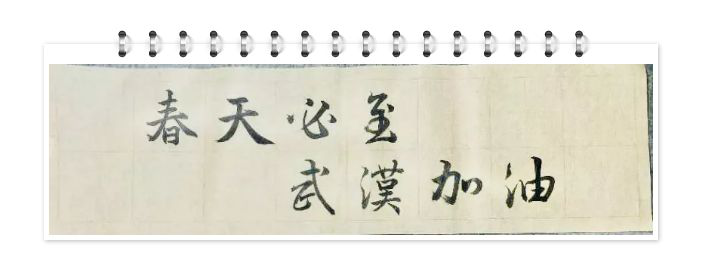 春天必至
武漢加油